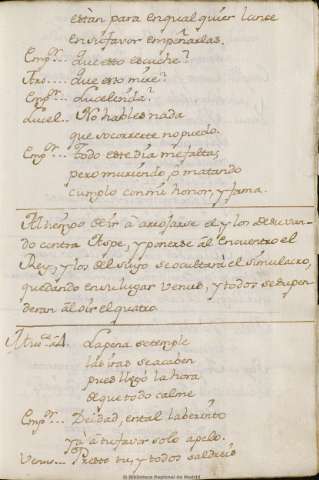 están para en qualquier lanse
en su favor empeñarlas.
Emp.r... que esto escuche?
Atro.... que esto mire?
Emp.r... Lucelinda?
Lucel... No hables nada
que socorrerte no puedo.
Emp.r... Todo este dia me falta;
pero muriendo, ó matando
cumplo con mi honor, y fama.
Al tiempo de ir à arrojarse el y los de su van-
do contra Etope, y ponerse al encuentro el
Rey, y los del suyo se ocultará el simulacro,
quedando en su lugar Venus, y todos se suspen-
deran al oir el quatro.
La pena se temple
las iras se acaben
pues llegó la hora
de que todo calme
Emp.r... Deidad, en tal laberinto
yà à tu favor solo apelo.
Venus... Presto tu, y todos saldreis
© Biblioteca Nacional de Madrid